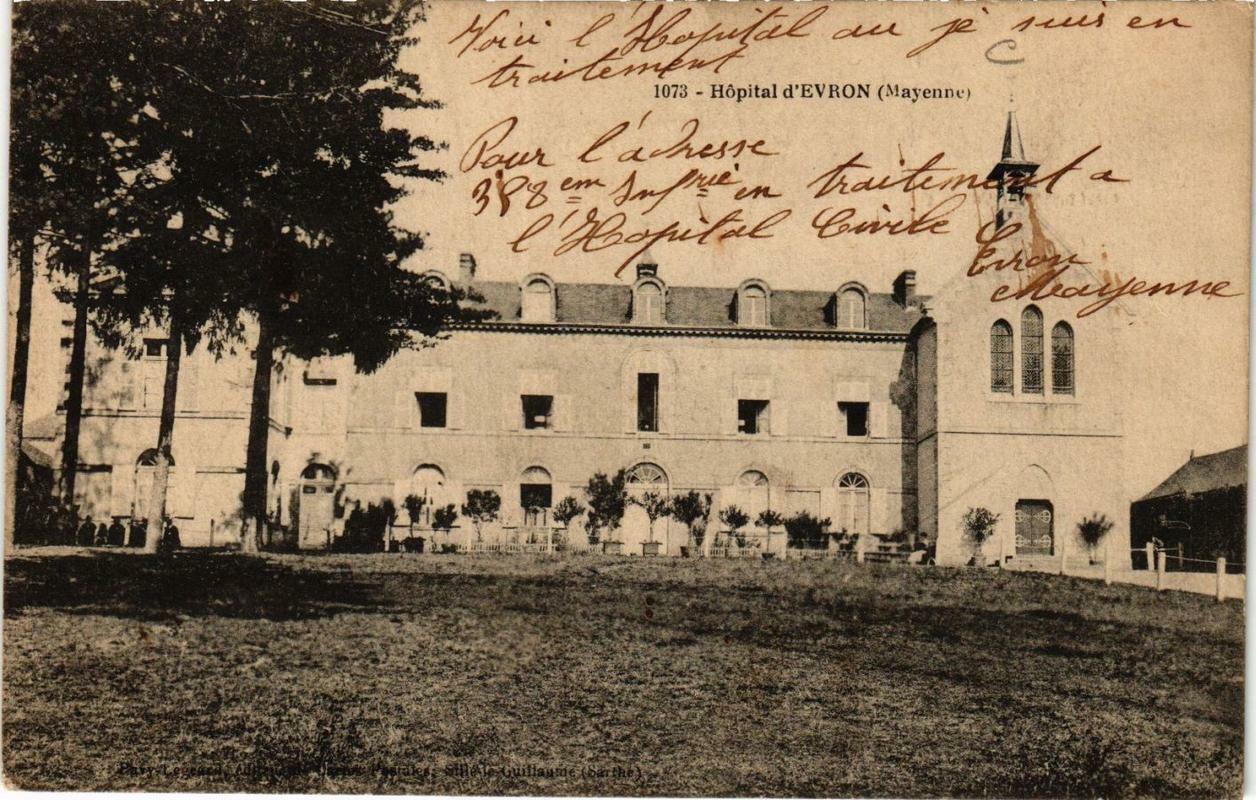 Voici l'Hopital au je suis en
traitement
1073 - Hôpital d'EVRON (Mayenne)
Pour l'adresse
358 em Infrie en traitement a
l'Hopital Civile
Evron
Mayenne
Cartes Postales, Sillé-le-Guillaume (Sarthe)